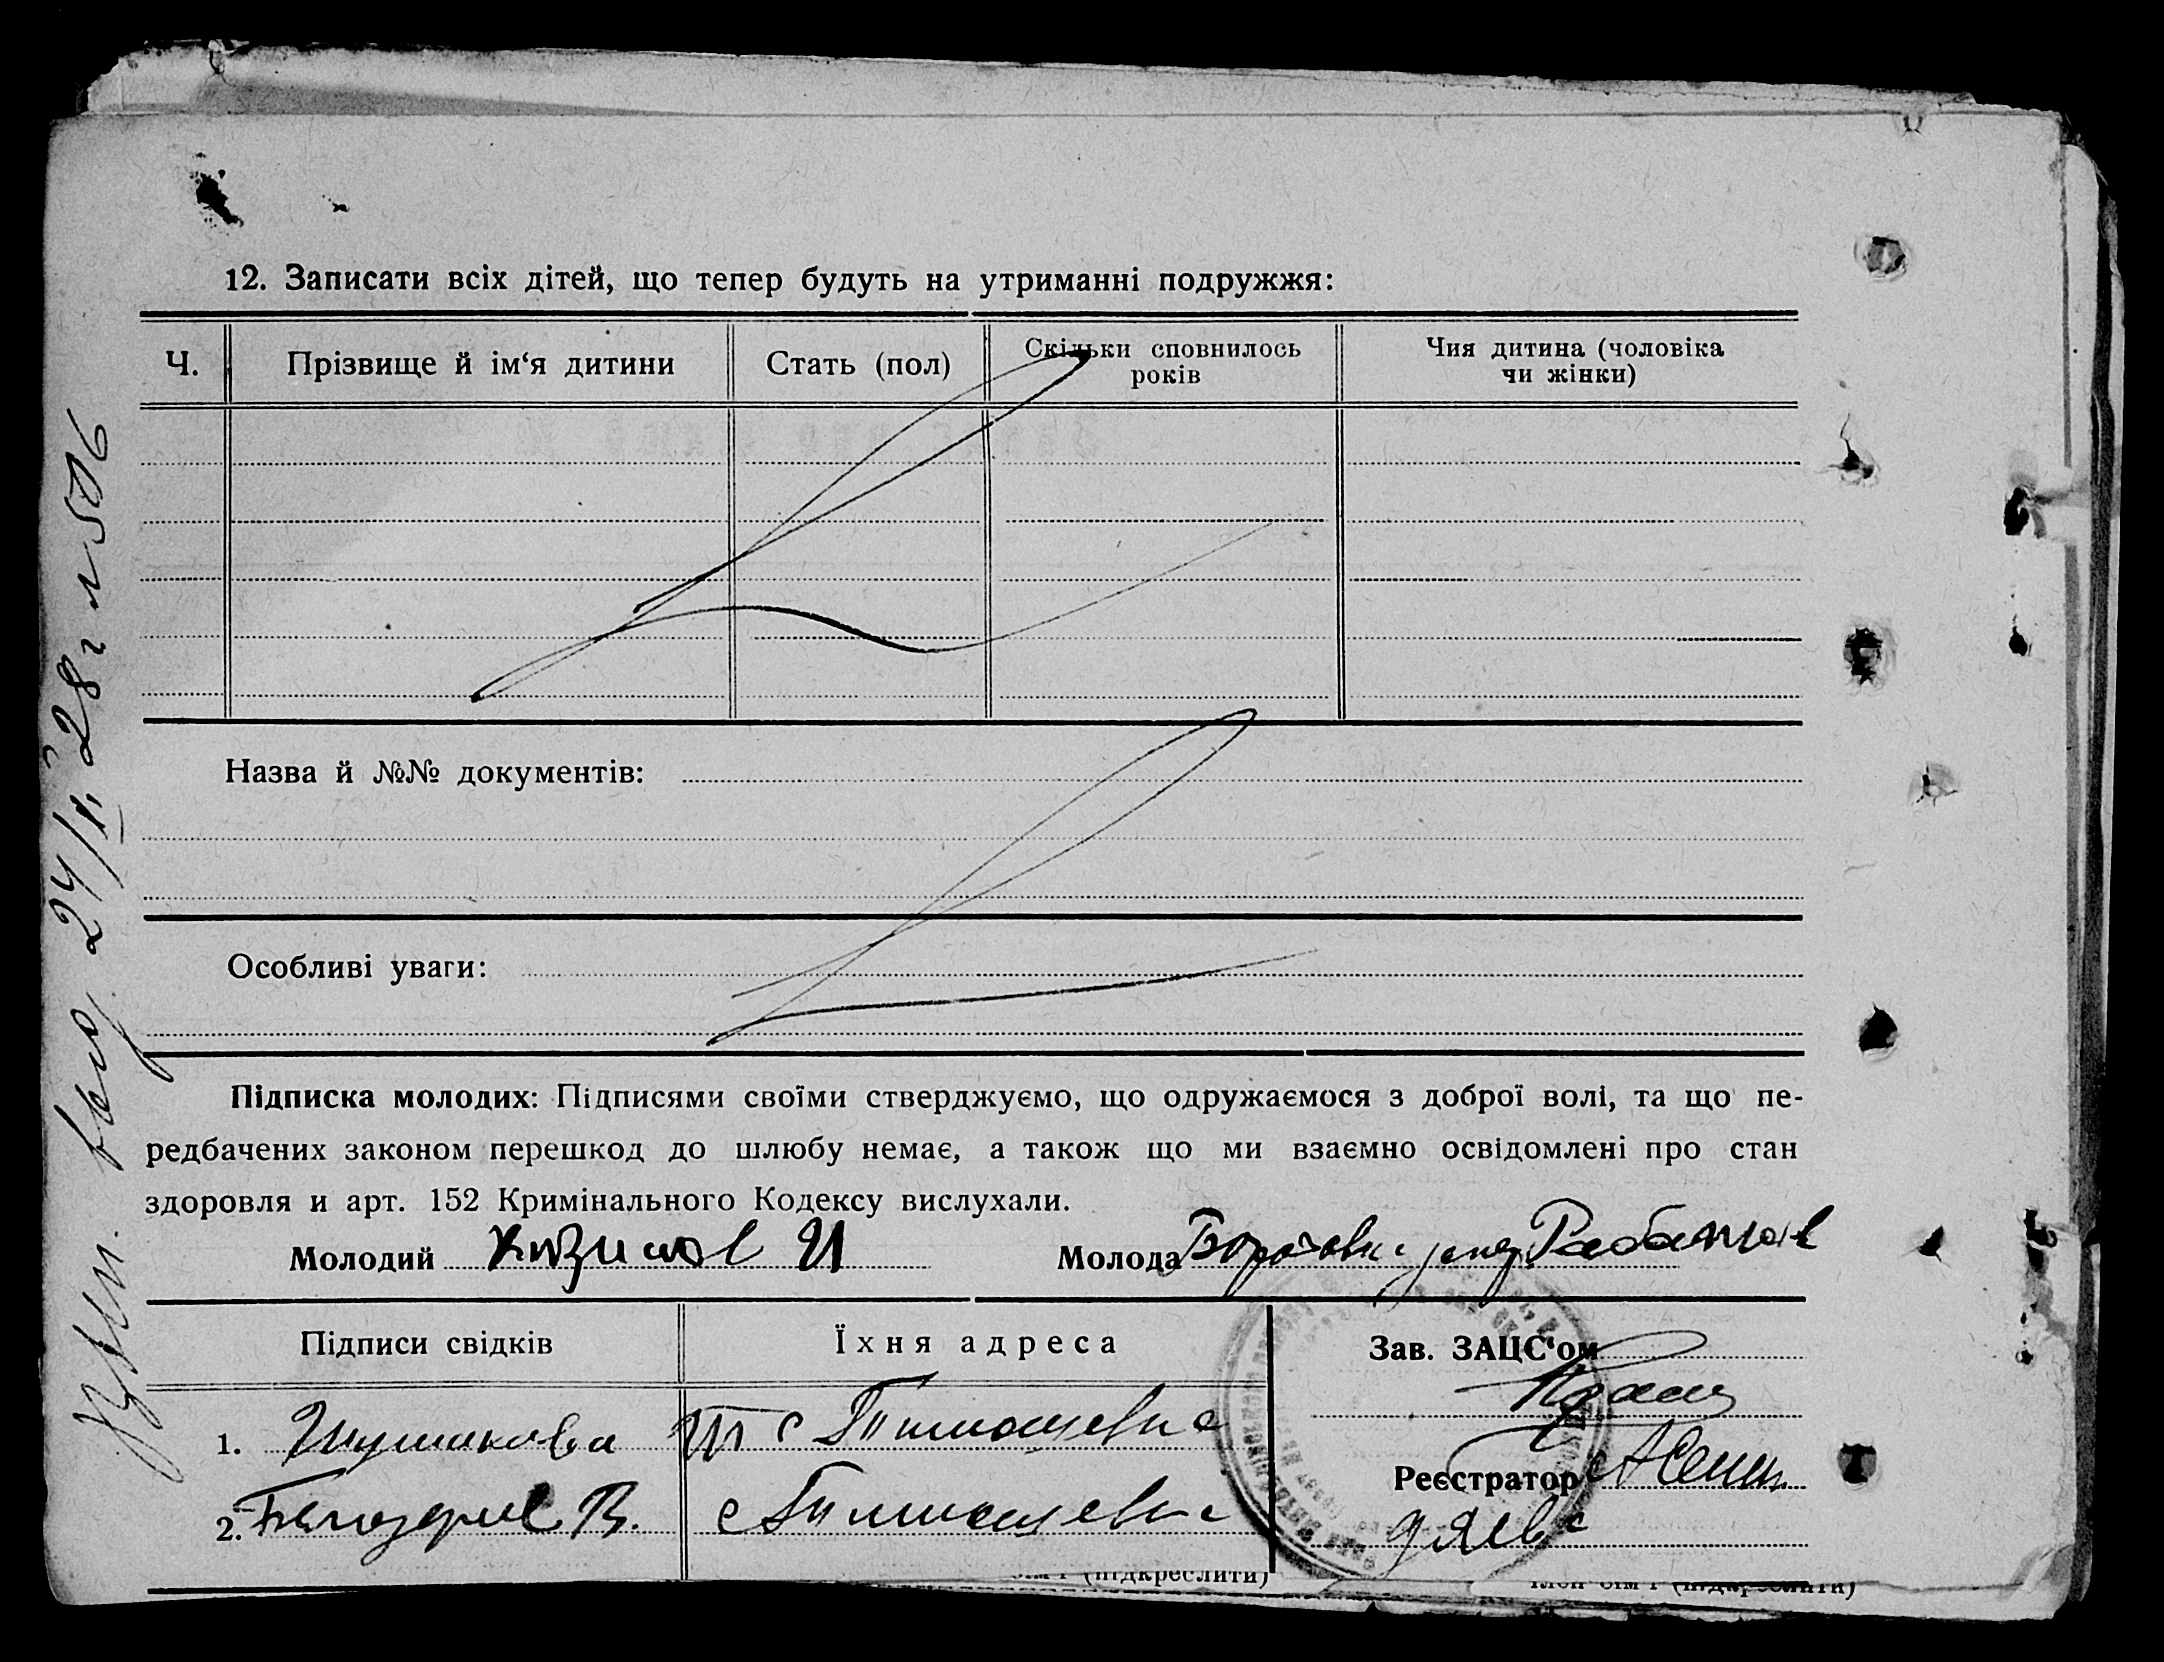 12. Записати всіх дітей, що тепер будуть на утриманні подружжя:
Ч.
Прізвище й ім‘я дитини
Стать (пол)
Скільки сповнилось
років
Чия дитина (чоловіка
чи жінки)
Назва й №№ документів:
Особливі уваги:
Підписка молодих: Підписями своїми стверджуємо, що одружаємося з доброї волі, та що пе-
редбачених законом перешкод до шлюбу немає, а також що ми взаємно освідомлені про стан
здоровля и арт. 152 Кримінального Кодексу вислухали.
Молодий
Молода
Підписи свідків
Їхня адреса
Зав. ЗАЦС‘ом
1.
с Тимошевке
Реєстратор
2.
с Тимошевке
(підкреслити)
24/II 28 г № 506